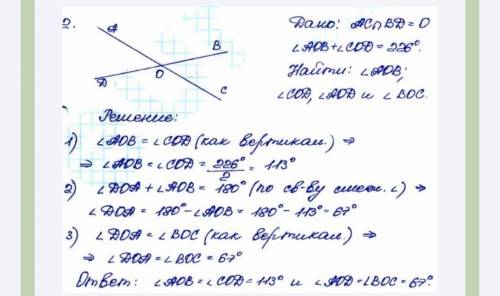 2.
A
B
O
D
C
Дано: AC∩BD=O
∠AOB+∠COD=226°.
Найти: ∠AOB;
∠COD, ∠AOD и ∠BOC.
Решение:
1) ∠AOB = ∠COD (как вертикал.) ⇒
⇒ ∠AOB = ∠COD = 226°/2 = 113°
2) ∠DOA + ∠AOB = 180° (по св-ву смежн. ∠) ⇒
∠DOA = 180° - ∠AOB = 180° - 113° = 67°
3) ∠DOA = ∠BOC (как вертикал.) ⇒
⇒ ∠DOA = ∠BOC = 67°
Ответ: ∠AOB = ∠COD = 113° и ∠AOD = ∠BOC = 67°.